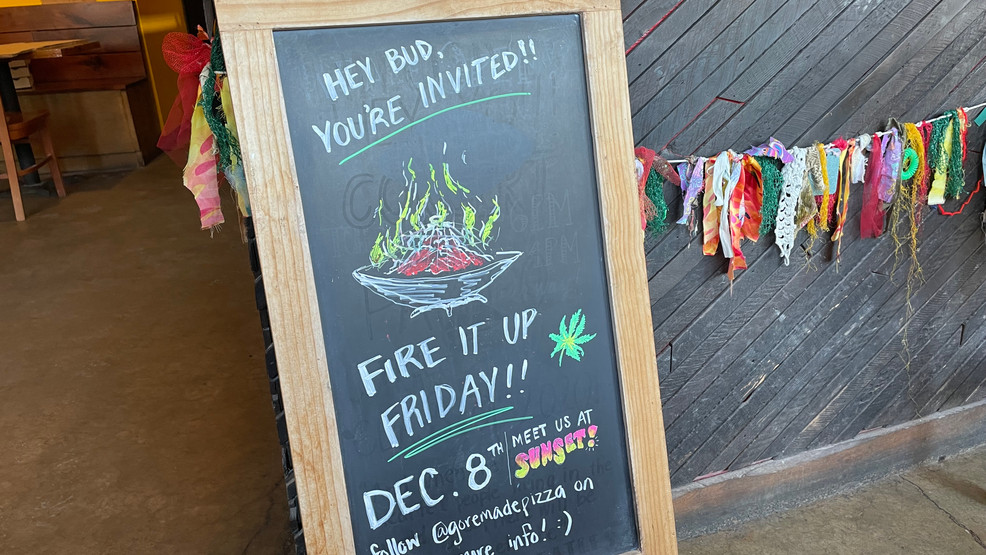 HEY BUD,
YOU'RE INVITED!!
FIRE IT UP
FRIDAY!!
DEC. 8TH
MEET US AT
SUNSET!
follow @goremadepizza on
more info! :)